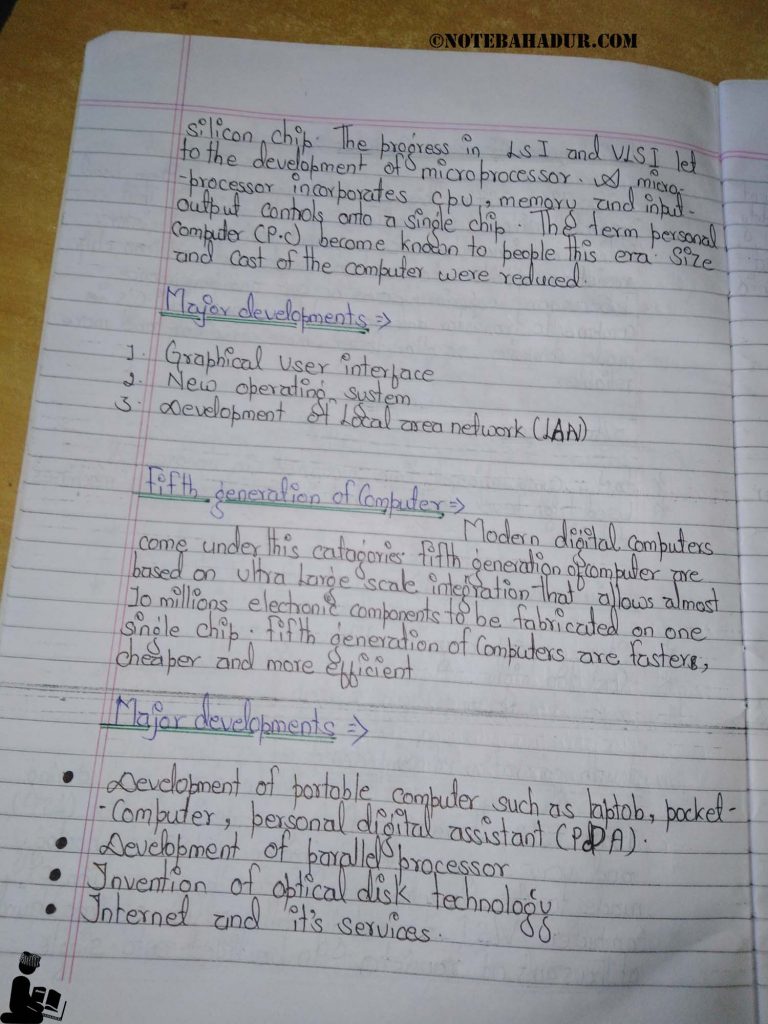 ©NOTEBAHADUR.COM
silicon chip. The progress in LSI and VLSI let
to the development of microprocessor. A micro-
-processor incorporates cpu, memory and input-
output controls onto a single chip. The term personal
computer (P.C) become known to people this era. Size
and cost of the computer were reduced.
Major developments =>
1. Graphical user interface
2. New operating system
3. Development of Local area network (LAN)
Fifth generation of Computer =>
Modern digital computers
come under this catagories. fifth generation of computer are
based on ultra Large scale integration that allows almost
10 millions electronic components to be fabricated on one
single chip. fifth generation of Computers are fasters,
cheaper and more efficient
Major developments =>
• Development of portable computer such as laptob, pocket-
-Computer, personal digital assistant (PDA).
• Development of parallel processor
• Invention of optical disk technology
• Internet and it's services.